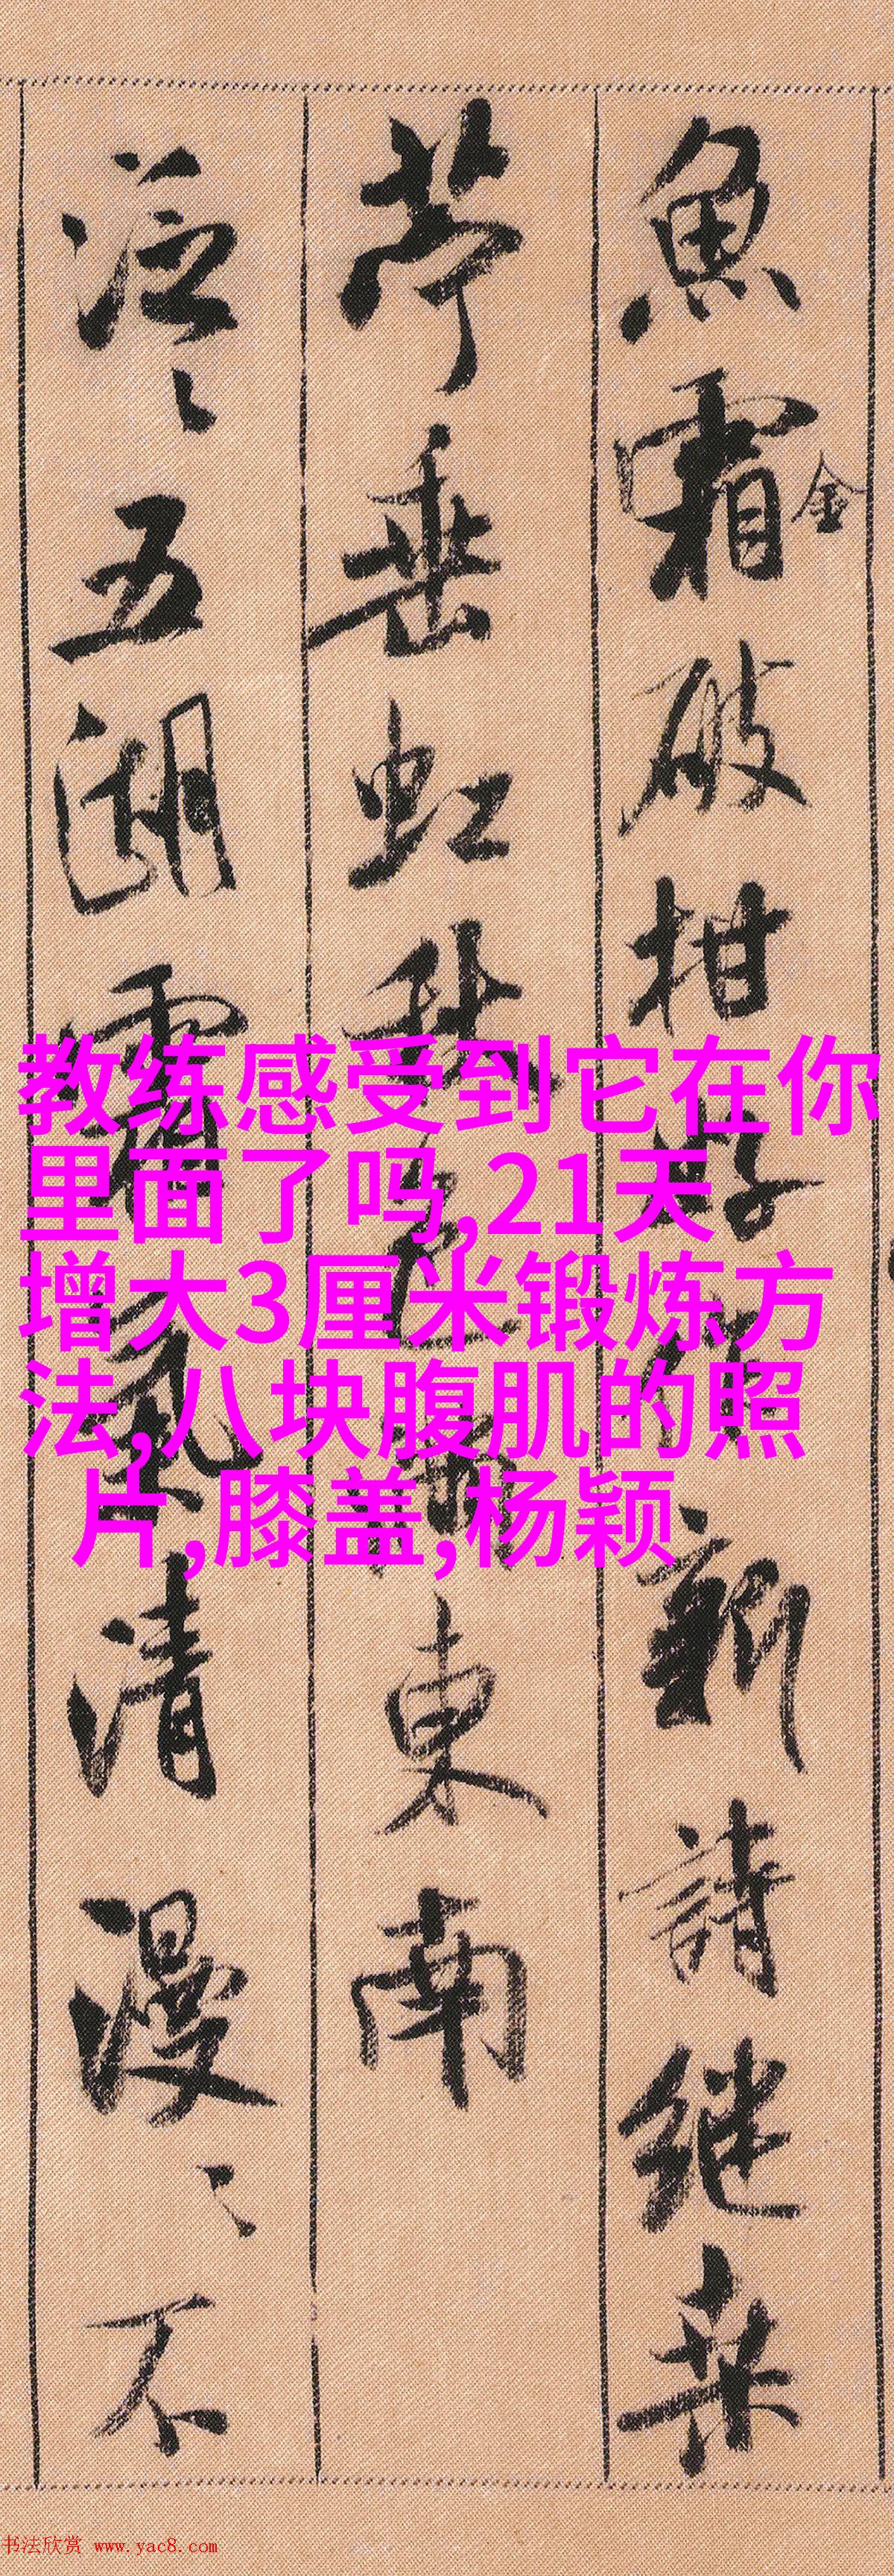 魚霜金破柑好作新詩继桑
苧垂虹秋色滿東南
泛〻五湖霜氣清漫〻不
教练感受到它在你
里面了吗,21天
增大3厘米锻炼方
法,八块腹肌的照
片,膝盖,杨颖
书法欣赏 www.yac8.com